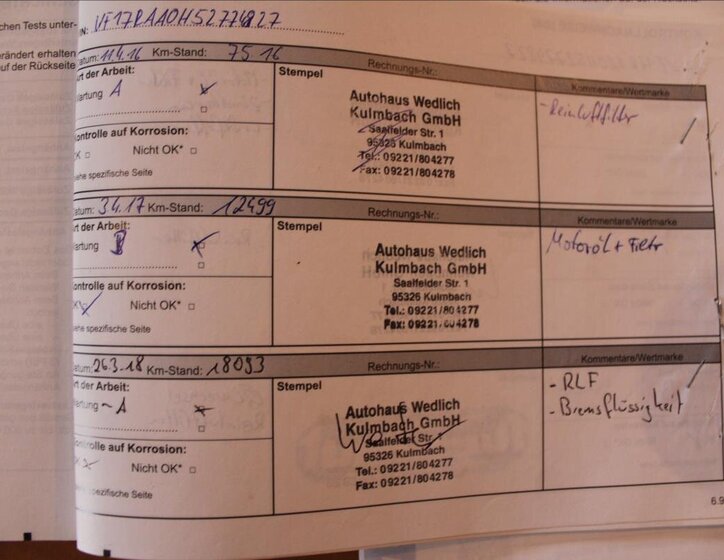 chen Tests unter-
erändert erhalten
uf der Rückseite
IN:
atum: 11.4.16 Km-Stand: 7516 Rechnungs-Nr.:
rt der Arbeit: Stempel Kommentare/Wertmarke
artung A
Autohaus Wedlich
Kulmbach GmbH
Saalfelder Str. 1
95326 Kulmbach
Tel.: 09221/804277
Fax: 09221/804278
- Reinluftfilter
ontrolle auf Korrosion:
K Nicht OK*
ehe spezifische Seite
atum: 3.4.17 Km-Stand: 12499 Rechnungs-Nr.:
rt der Arbeit: Stempel Kommentare/Wertmarke
artung B
Autohaus Wedlich
Kulmbach GmbH
Saalfelder Str. 1
95326 Kulmbach
Tel.: 09221/804277
Fax: 09221/804278
Motoröl + Filter
ontrolle auf Korrosion:
K Nicht OK*
ehe spezifische Seite
atum: 26.3.18 Km-Stand: 18093 Rechnungs-Nr.:
rt der Arbeit: Stempel Kommentare/Wertmarke
artung - A
Autohaus Wedlich
Kulmbach GmbH
Saalfelder Str. 1
95326 Kulmbach
Tel.: 09221/804277
Fax: 09221/804278
- RLF
- Bremsflüssigkeit
ontrolle auf Korrosion:
K Nicht OK*
he spezifische Seite
6.9